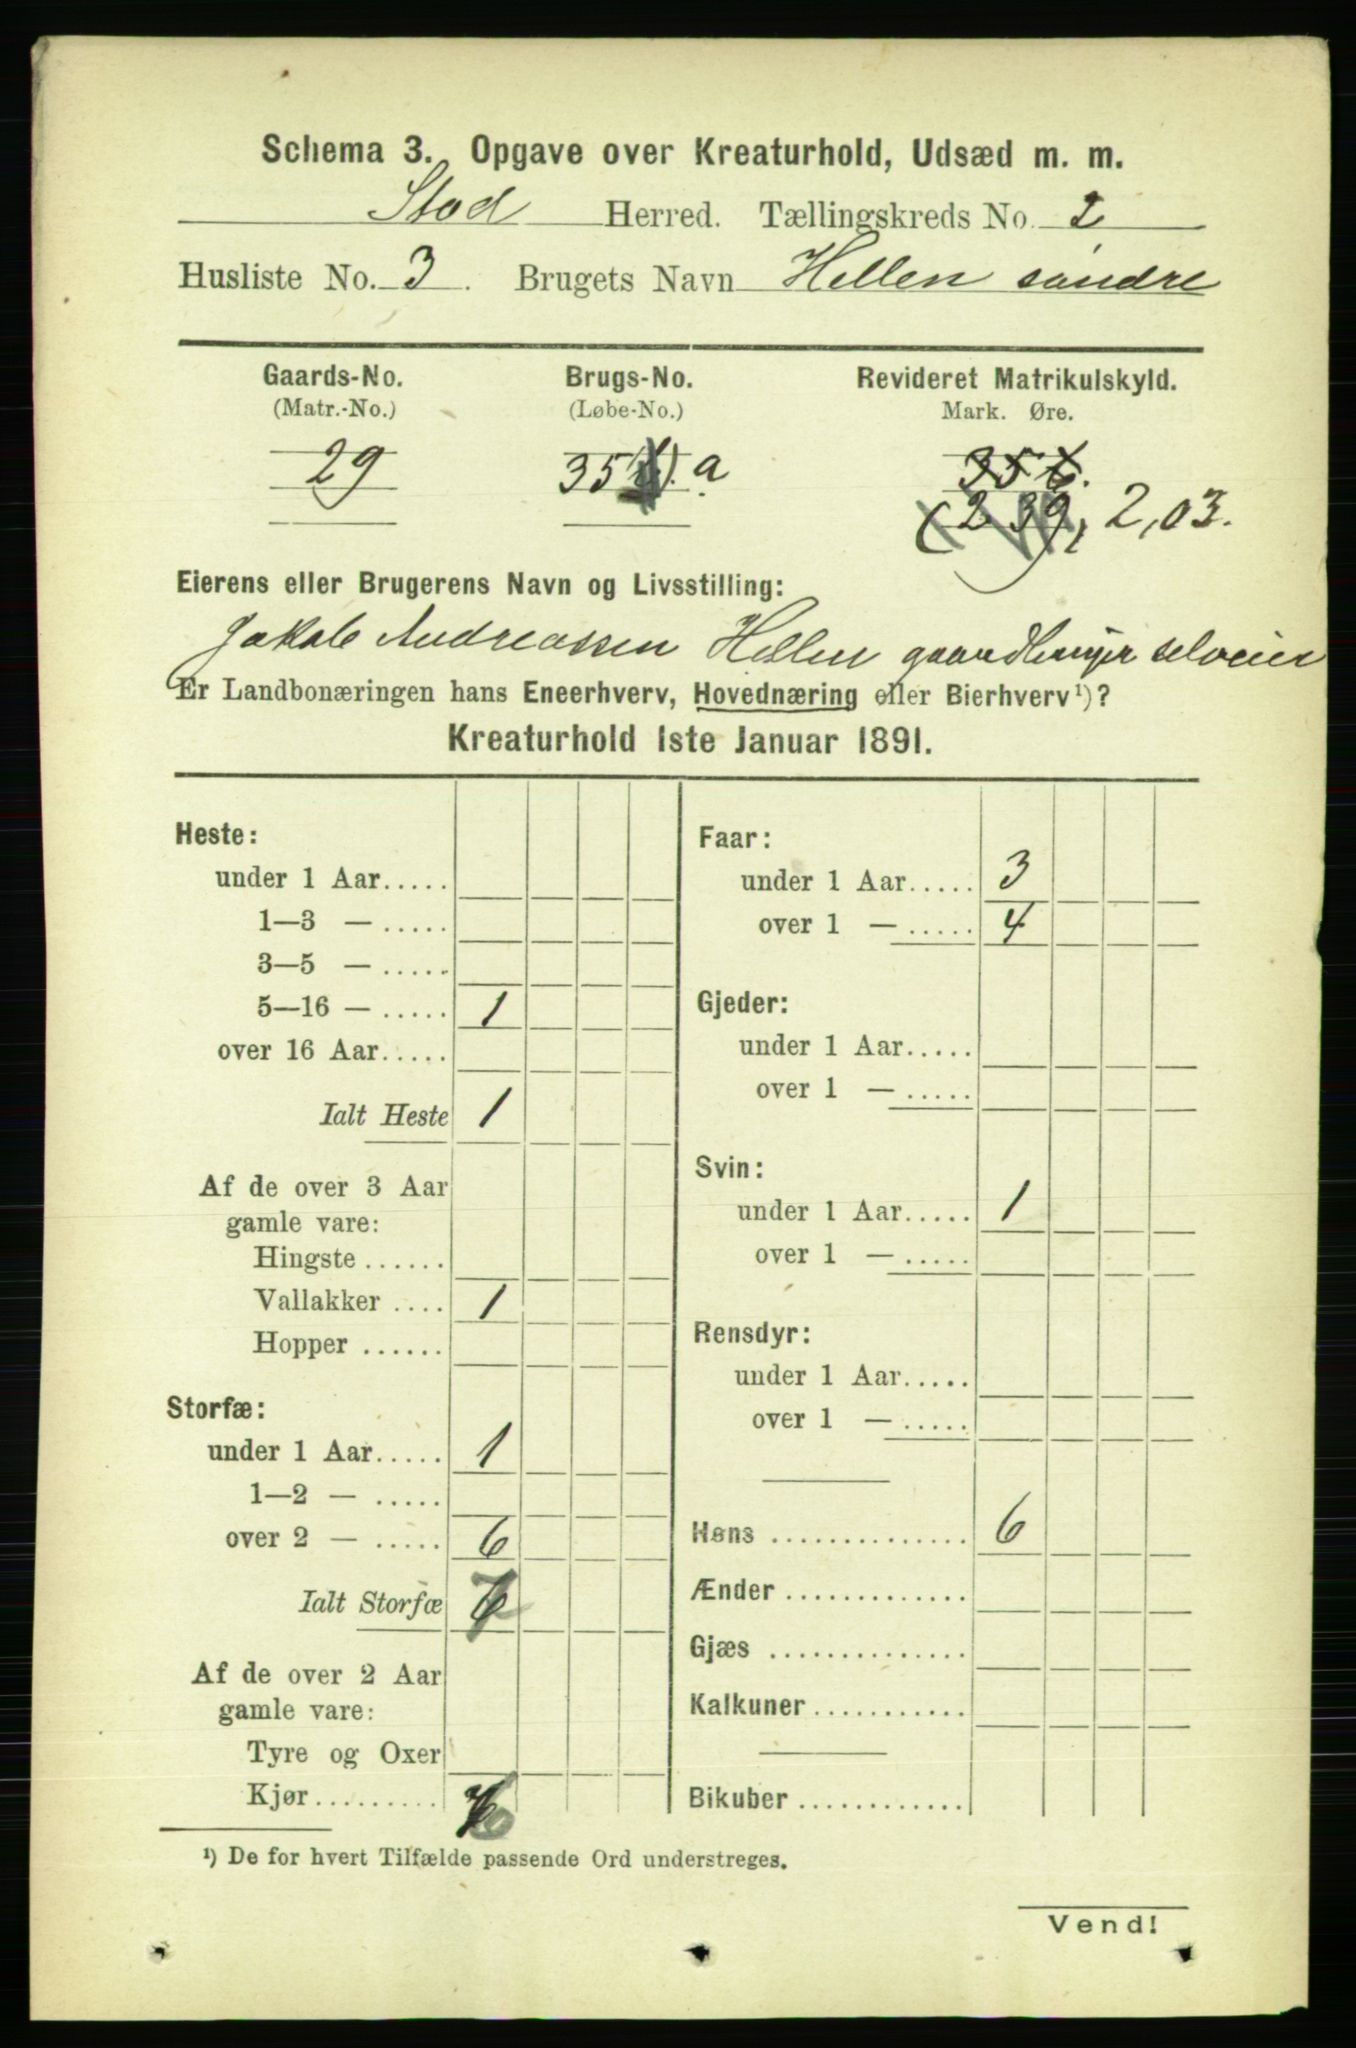 Schema 3. Opgave over Kreaturhold, Udsæd m. m.
Stod Herred. Tællingskreds No. 2
Husliste No. 3. Brugets Navn Hellen søndre
Gaards-No. Brugs-No. Revideret Matrikulskyld.
(Matr.-No.) (Løbe-No.) Mark. Øre.
29 35 a 35 6.
(2 39), 2,03.
Eierens eller Brugerens Navn og Livsstilling:
Jakob Andreassen Hellen gaardbruger selveier
Er Landbonæringen hans Eneerhverv, Hovednæring eller Bierhverv¹)?
Kreaturhold 1ste Januar 1891.
Heste:
under 1 Aar.....
1—3 — .....
3—5 — .....
5—16 — ..... 1
over 16 Aar.....
Ialt Heste 1
Af de over 3 Aar
gamle vare:
Hingste ......
Vallakker .... 1
Hopper ......
Storfæ:
under 1 Aar..... 1
1—2 — .....
over 2 — ..... 6
Ialt Storfæ 7
Af de over 2 Aar
gamle vare:
Tyre og Oxer
Kjør......... 6
Faar:
under 1 Aar..... 3
over 1 — ..... 4
Gjeder:
under 1 Aar.....
over 1 — .....
Svin:
under 1 Aar..... 1
over 1 — .....
Rensdyr:
under 1 Aar.....
over 1 — .....
Høns .............. 6
Ænder .............
Gjæs ..............
Kalkuner ...........
Bikuber ............
¹) De for hvert Tilfælde passende Ord understreges.
Vend!